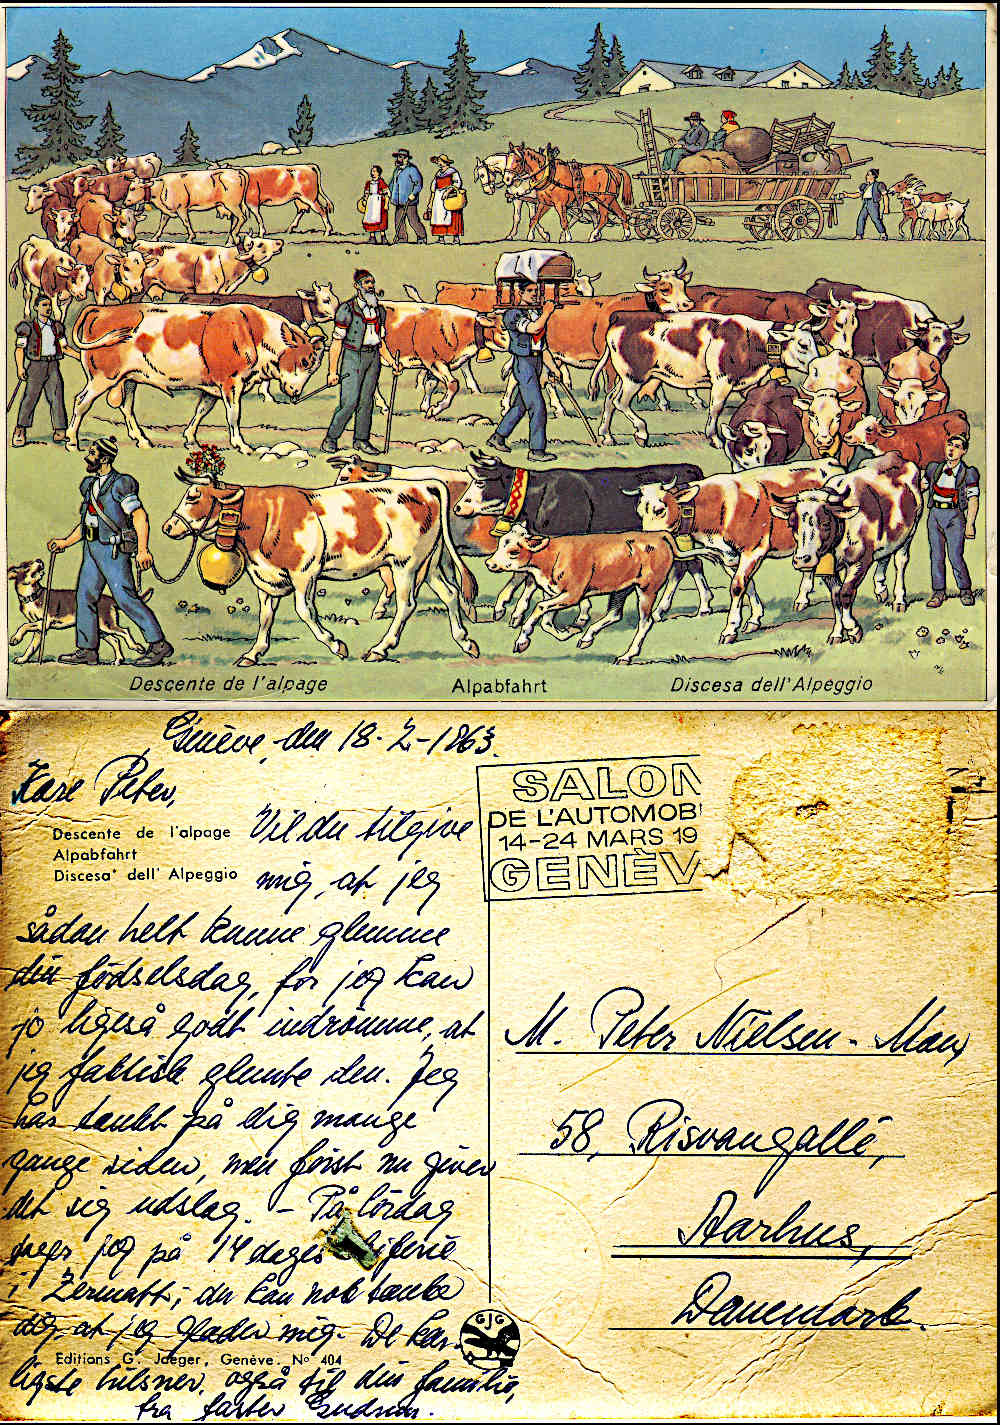 Descente de l'alpage
Alpabfahrt
Discesa dell'Alpeggio
Genève, den 18-2-1963.
Kære Peter,
Descente de l'alpage
Alpabfahrt
Discesa dell' Alpeggio
Vil du tilgive
mig, at jeg
sådan helt kunne glemme
din födselsdag, for jeg kan
jo ligeså godt indrömme, at
jeg faktisk glemte den. Jeg
har tænkt på dig mange
gange siden, men först nu giver
det sig udslag. - På lördag
tager jeg på 14 dages skiferie
i Zermatt; du kan nok tænke
dig, at jeg glæder mig. De kær-
ligste hilsner, også til din familie,
fra faster Gudrun.
Editions G. Jaeger, Genève. No 404
GJG
SALON
DE L'AUTOMOBI
14-24 MARS 19
GENÈV
M. Peter Nielsen-Man
58, Risvangallé,
Aarhus,
Danemark.